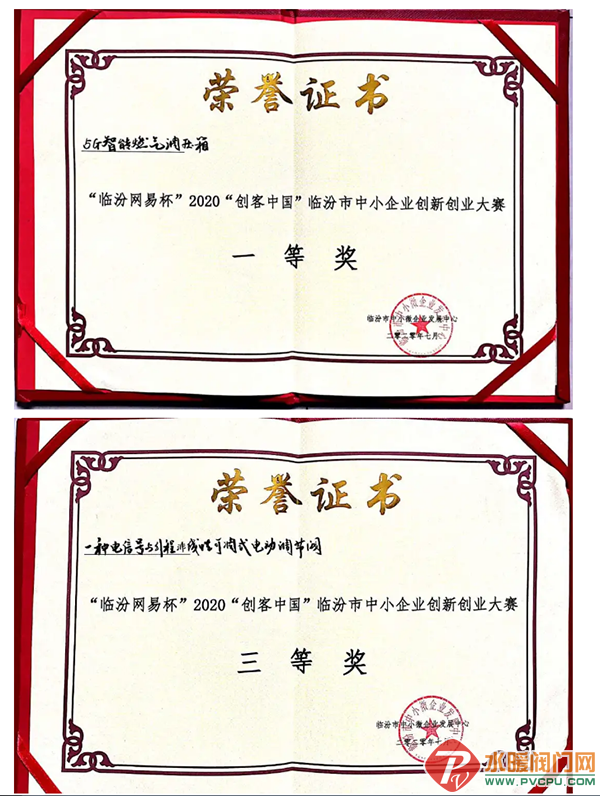 荣誉证书
5G智能燃气调压箱
“临汾网易杯”2020“创客中国”临汾市中小企业创新创业大赛
一等奖
临汾市中小微企业发展中心
二〇二〇年七月
荣誉证书
一种电信号与行程非线性可调式电动调节阀
“临汾网易杯”2020“创客中国”临汾市中小企业创新创业大赛
三等奖
临汾市中小微企业发展中心
二〇二〇年七
水暖阀门网
WWW.PVCPU.COM